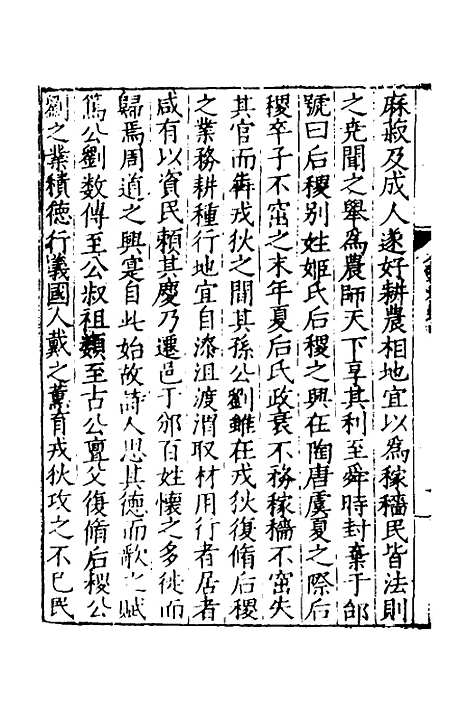 麻菽及成人遂好耕農相地宜以為稼穡民皆法則
之堯聞之舉為農師天下享其利至舜時封棄于邰
號曰后稷别姓姬氏后稷之興在陶唐虞夏之際后
稷卒子不窋之末年夏后氏政衰不務稼穡不窋失
其官而犇戎狄之間其孫公劉雖在戎狄復脩后稷
之業務耕種行地宜自漆沮渡渭取材用行者居者
咸有以資民頼其慶乃遷邑于邠百姓懐之多徙而
歸焉周道之興寔自此始故詩人思其德而歌之賦
篤公劉数傳至公叔祖類至古公亶父復脩后稷公
劉之業積德行義國人戴之薫育戎狄攻之不已民